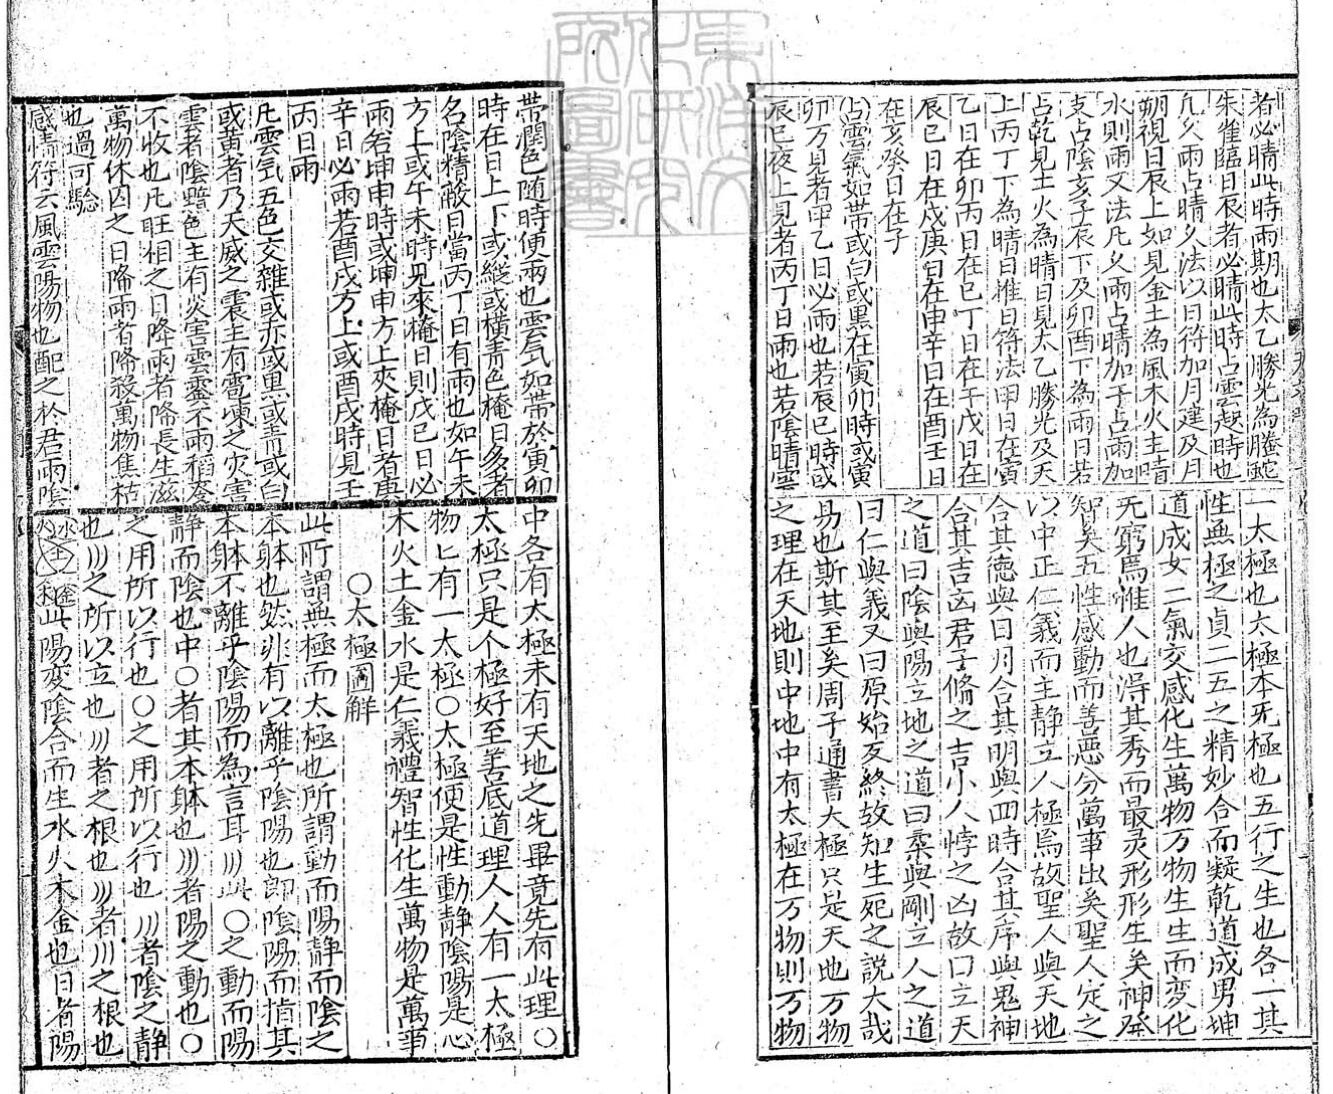 者必晴此時雨期也太乙勝光為螣蛇
朱雀臨日辰者必晴此時占雲起時也
凡久雨占晴久法以日符加月建及月
朔視日辰上如見金土為風木火主晴
水則雨又法凡久雨占晴加子占雨加
支占陰亥子辰下及卯酉下為雨日若
占乾見土火為晴日見太乙勝光及天
上丙丁下為晴日推日符法甲日在寅
乙日在卯丙日在巳丁日在午戊日在
辰巳日在戌庚日在申辛日在酉壬日
在亥癸日在子
占雲氣如帶或白或黑在寅卯時或寅
卯方見者甲乙日必雨也若辰巳時或
辰巳夜上見者丙丁日雨也若陰晴雲
一太極也太極本旡極也五行之生也各一其
性無極之貞二五之精妙合而凝乾道成男坤
道成女二氣交感化生萬物万物生生而変化
旡窮焉惟人也淂其秀而最灵形形生矣神發
智矣五性感動而善恶分萬事出矣聖人定之
以中正仁義而主静立人極焉故聖人與天地
合其德與日月合其明與四時合其序與鬼神
合其吉凶君子脩之吉小人悖之凶故曰立天
之道曰陰與陽立地之道曰柔與剛立人之道
曰仁與義又曰原始反終故知生死之說大哉
易也斯其至矣周子通書太極只是天地万物
之理在天地則中地中有太極在万物則万物
帶潤色随時便雨也雲氣如帶於寅卯
時在日上下或縱或橫青色掩日多者
名陰精蔽日當丙丁日有雨也如午未
方上或午未時見來掩日則戊巳日必
雨若坤申時或坤申方上夾掩日者庚
辛日必雨若酉戌方上或酉戌時見壬
丙日雨
凡雲氣五色交雜或赤或黑或青或白
或黄者乃天威之震主有雹凍之灾害
雲者陰黯色主有災害雲靈不雨稻麥
不收也凡旺相之日降雨者降長生滋
萬物休囚之日降雨者降殺萬物焦枯
也過可驗
感情符云風雲陽物也配之於君雨陰
中各有太極未有天地之先畢竟先有此理○
太極只是个極好至善底道理人人有一太極
物匕有一太極○太極便是性動静陰陽是心
木火土金水是仁義禮智性化生萬物是萬事
○太極圖解
此所謂無極而太極也所謂動而陽静而陰之
本躰也然非有以離乎陰陽也即陰陽而指其
本躰不離乎陰陽而為言耳⫻此○之動而陽
静而陰也中○者其本躰也⫻者陽之動也○
之用所以行也○之用所以行也⫻者陰之静
也⫻之所以立也⫻者之根也⫻者⫻之根也
此陽変陰合而生水火木金也曰者陽